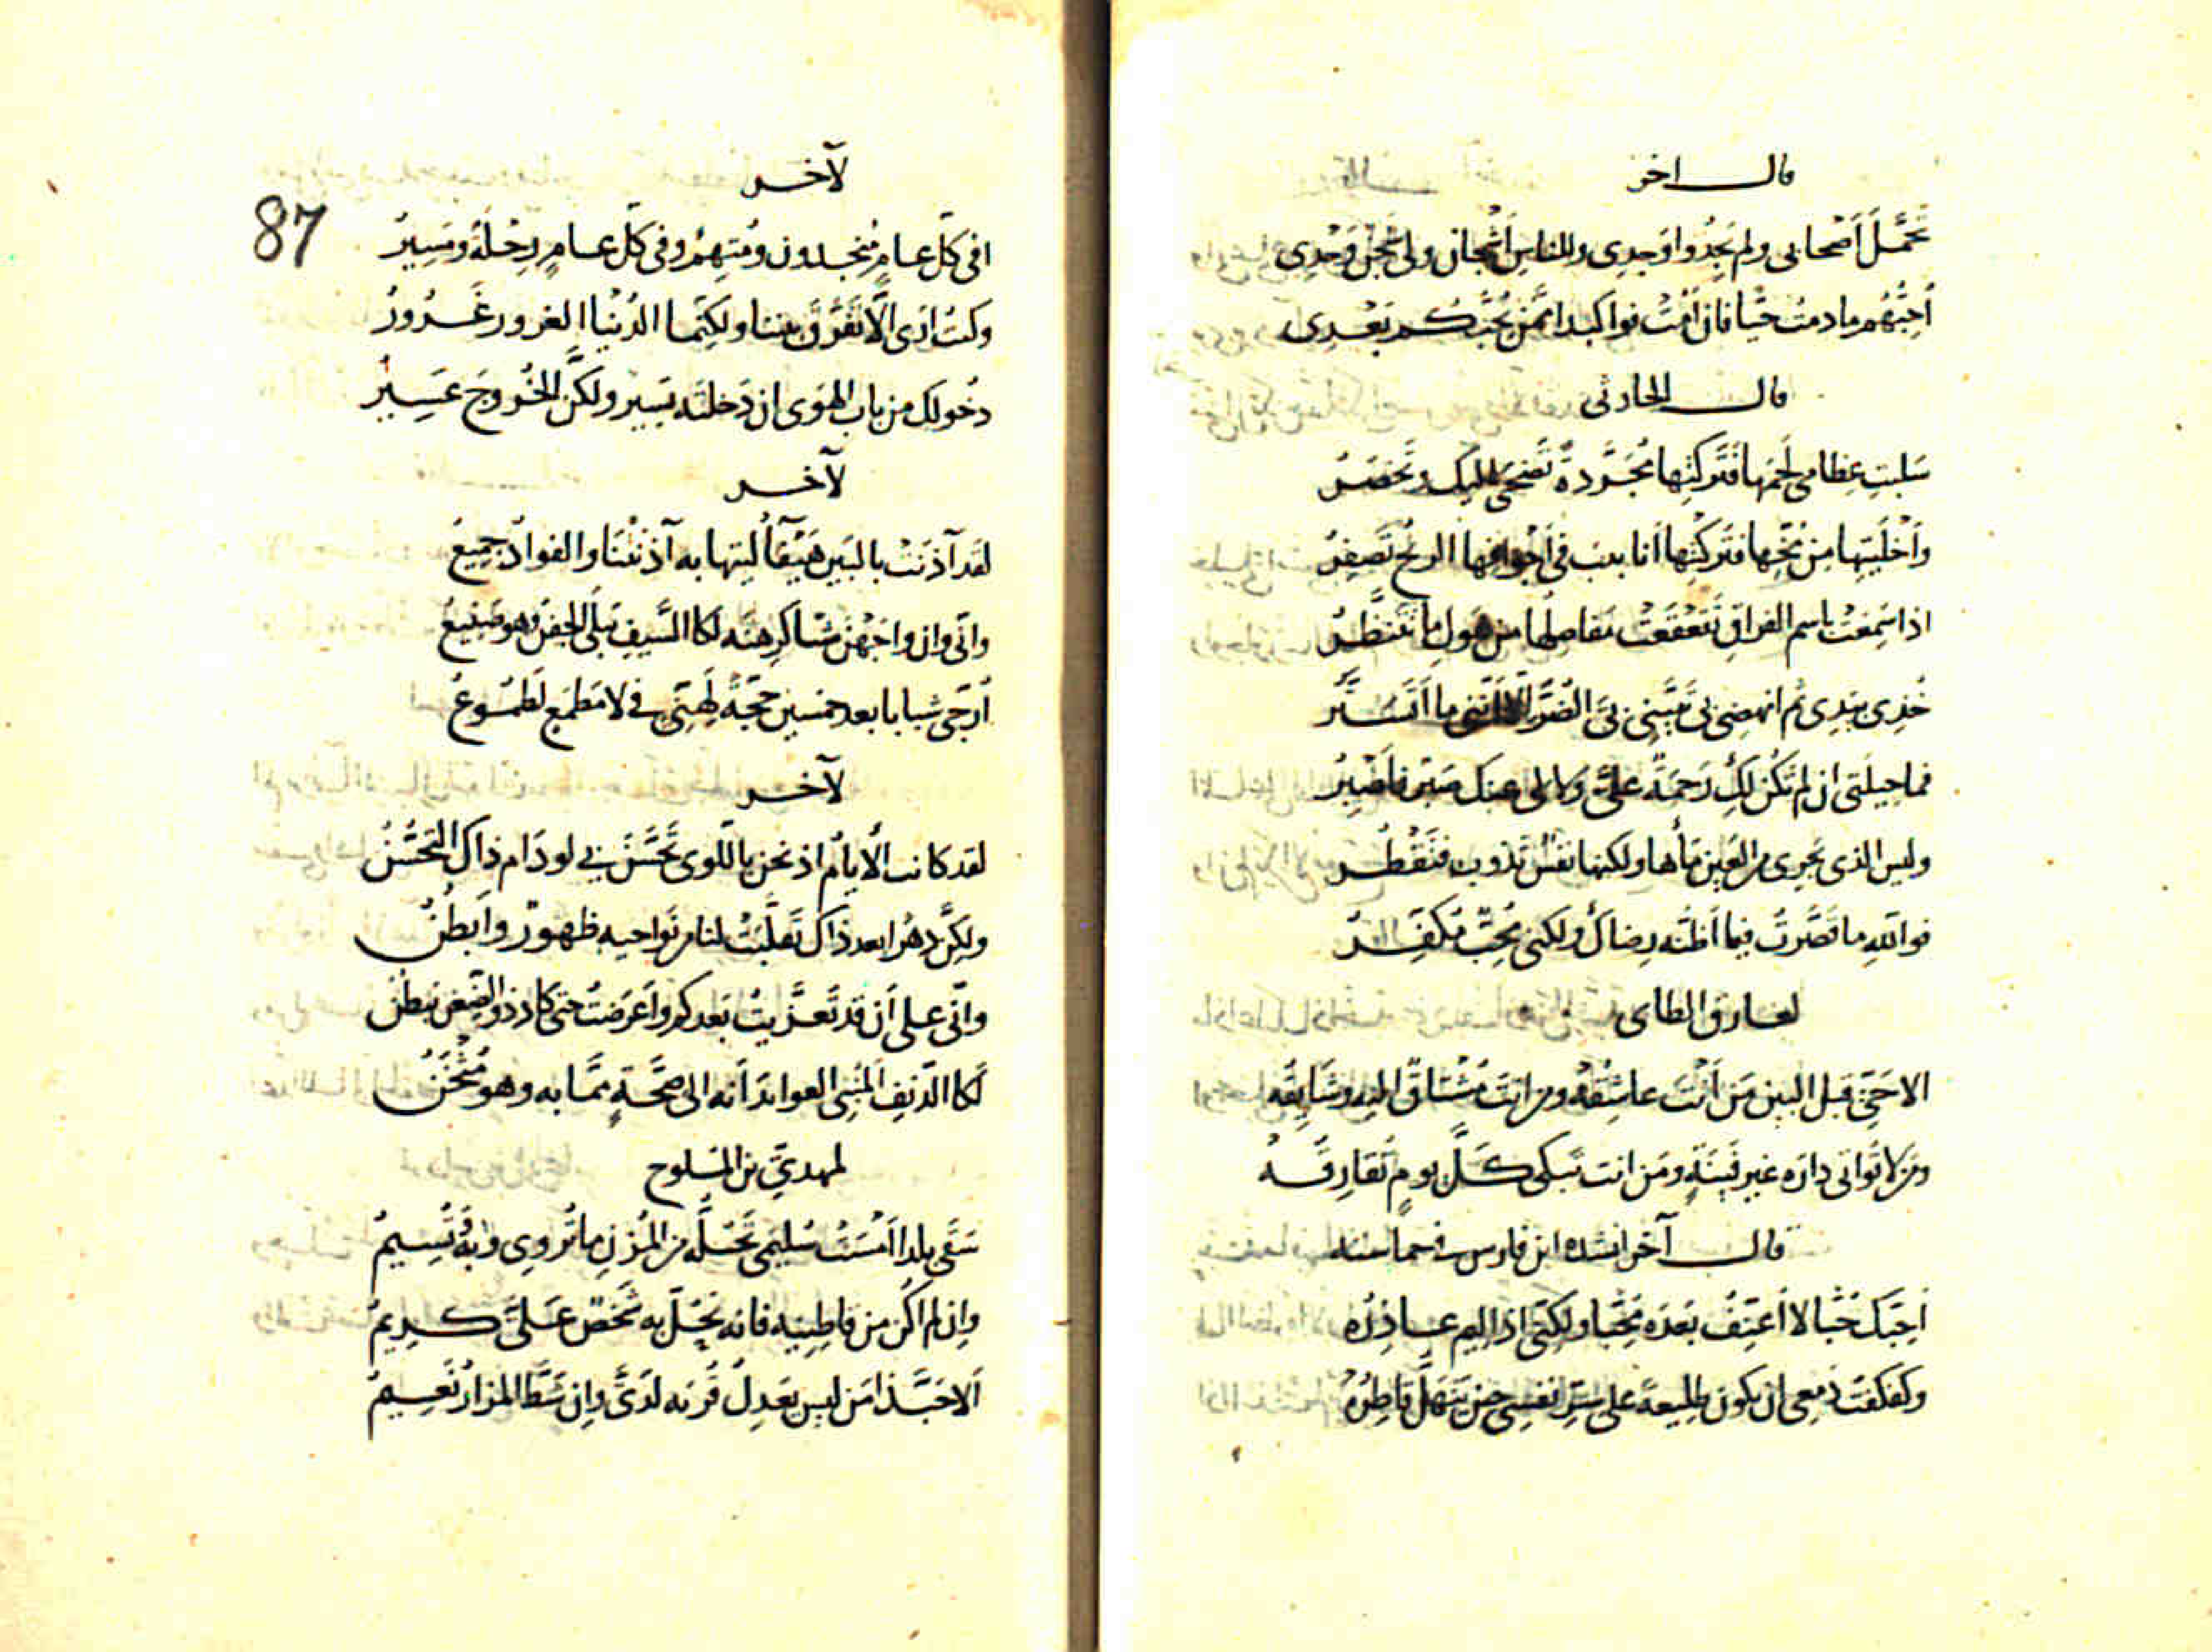 قال اخر
تَحَمَّلَ أَصْحابي ولم يَجِدُوا وَجدِى وللناسِ أَشْجان ولى شَجَنٌ وَحْدِى
أُحِبُّهُم مادمتُ حَيًّا فان أَمُتْ فوا كبدا مَمَّن يُحِبُّكم بَعْدِى
قال الحارثى
سَلبتِ عِظامى لَحمَها فتَركتِها مُجَرَّدةً تَضحى اليك وتَخصَرُ
وأَخليتِها من مُخِّها فتَركتِها أنابيبَ فى أَجْوافِها الريحُ تَصْفِرُ
اذا سَمِعَتْ باسم الفراقِ تَقَعْقَعَتْ مَفاصلها من هَولِ ما تَتَنَظَّرُ
خُذِى بيَدِى ثم انهضى بى تَبَيَّنى بىَ الضُرَّ الا أنّنى ما أَتَسَتَّرُ
فما حيلتى ان لم تَكُن لكِ رَحمَةٌ علىَّ ولا لى عنك صَبر فأَصْبِرُ
وليس الذى يَجرى من العَين مَاءُها ولكنها نَفْس تَذوب فتَقْطُر
فوالله ما قَصَّرتُ فيما أَظنُّه رِضاكِ ولكنى مُحِبٌّ مُكَفَّرُ
لعارق الطاى
الا حَىِّ قَبل البين مَن أَنتَ عاشِقُهْ ومن انتَ مُشْتاقٌ اليه وشَايِقُه
ومن لا تُواتى دارُه غير فَينَةٍ ومَن انت تَبكى كلَّ يومٍ تُفارِقُهْ
قال آخر انشده ابن فارس فى حماسته
أُحِبّك حُبًّا لا أُعَنِّفُ بَعدَه مُحِبًّا ولكنّى اذا ليمَ عاذِرُه
وكفكفتُ دَمعى ان يكون طليعةً على سِرّ نفسى حين يَنهَلّ قاطِرُهْ
87
لآخر
افى كلّ عامٍ مُنجدون ومُتهِمٌ وفى كلّ عامٍ رِحْلَةٌ ومَسِيرُ
وكنتُ ارَى الّا تَفَرُّقَ بيننا ولكنّما الدُنيا الغرور غَرُورُ
دُخولك من باب الهَوى ان دَخلتَه يَسير ولكنَّ الخُروجَ عَسِيرُ
لآخر
لقد آذنَتْ بالبَين هَيفآءُ ليتها به آذنتْنا والفوادُ جميعُ
وانّى وان واجَهْنَ شيبًا كرِهنَه لكا السَّيف يَبلَى الجفن وهو صَنيعُ
أُرَجّى شبابا بعد خمسين حجّةً لَهِنّى فى لا مَطمَعٍ لَطَمُوعُ
لآخر
لقد كانت الأيامُ اذ نحن باللّوى تَحَسَّنُ لى لو دَام ذاك التحَسُّنُ
ولكنَّ دهرا بعد ذاك تَقلَّبَتْ لنا من نَواحيه ظهورٌ وأَبطُنُ
وانّى على أن قد تَعزَّيتُ بَعدكم وأَعرَضتُ حتى كاد ذو الضِغن يَبطنُ
لَكا الدَّنِفِ المُنبى العوايدَ أنه الى صِحَّةٍ ممَّا به وهو مُثْخَنُ
لمهدىّ بن الملوح
سَقَى بلدا أمْسَتْ سُليمَى تَحُلّه من المُزنِ ما تُروِى وبه تُسِيمُ
وان لم أكن من قاطِنيه فانه يَحُلّ به شَخصٌ عَلَىَّ كريمُ
ألا حَبَّذا مَن ليس يَعدِلُ قُربَه لَدَىَّ وان شَطَّ المزارُ نَعيمُ